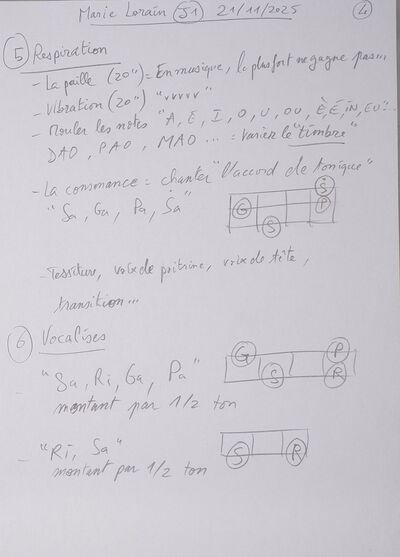 Marie Lorain S1 21/11/2025 4
5 Respiration
- La paille (20") = En musique, le plus fort ne gagne pas...
- Vibration (20") "vvvvv"
- Rouler les notes "A, E, I, O, U, OU, È, É, IN, EU"...
DAO, PAO, MAO... = varier le "timbre"
- La consonance = chanter "l'accord de tonique"
"Sa, Ga, Pa, Ṡa"
Ṡ
G P
S
- Tessiture, voix de poitrine, voix de tête,
transition...
6 Vocalises
- "Sa, Ri, Ga, Pa"
montant par 1/2 ton
G P
S R
- "Ri, Sa"
montant par 1/2 ton
S R